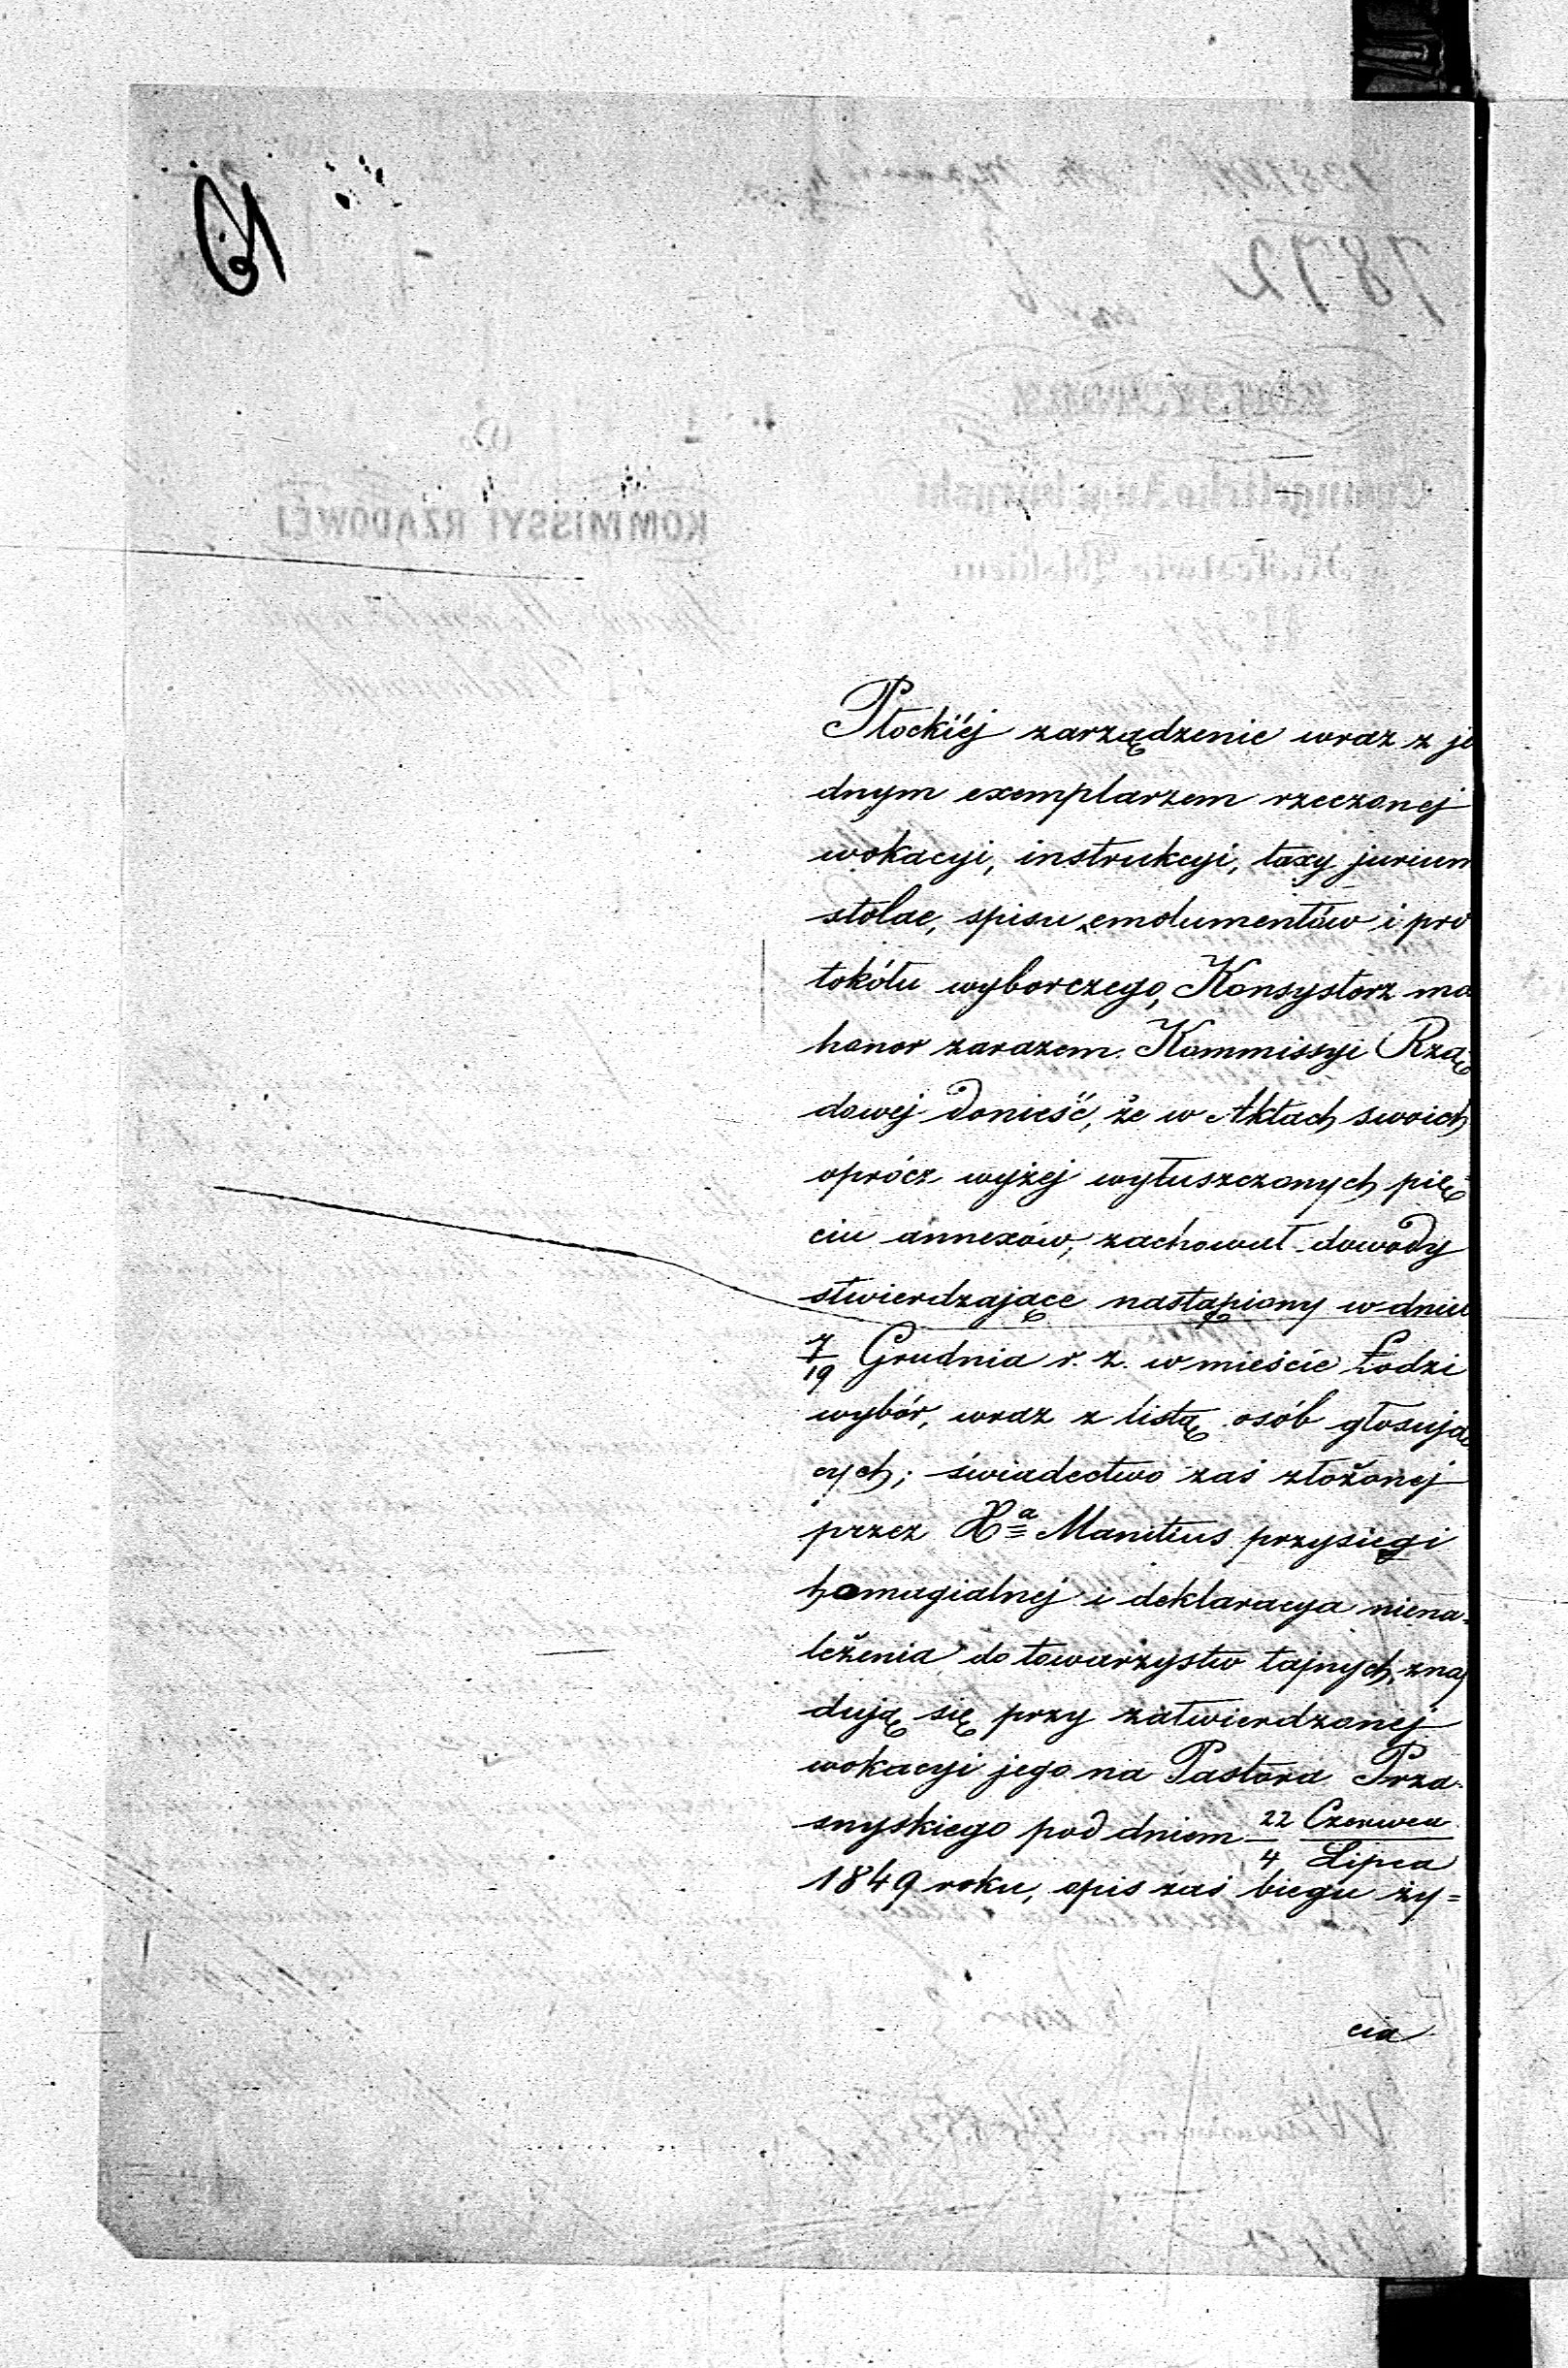 61
Płockiéj zarządzenie wraz z je
dnym exemplarzem rzeczonej
wokacyi, instrukcyi, taxy jurium
stolae, spisu emolumentów i pro
tokółu wyborczego, Konsystorz ma
honor zarazem Kommissyi Rzą-
dowej donieść, że w Aktach swoich
oprócz wyżej wyłuszczonych pię-
ciu annexów, zachował dowody
stwierdzające nastąpiony w dniu
7/19 Grudnia r. z. w mieście Łodzi
wybór, wraz z listą osób głosują
cych; świadectwo zaś złożonej
przez Xa Manitius przysięgi
homagialnej i deklaracya niena-
leżenia do towarzystw tajnych, znaj
dują się przy zatwierdzonej
wokacyi jego na Pastora Prza-
snyskiego pod dniem 22 Czerwca / 4 Lipca
1849 roku, opis zaś biegu ży=
cia